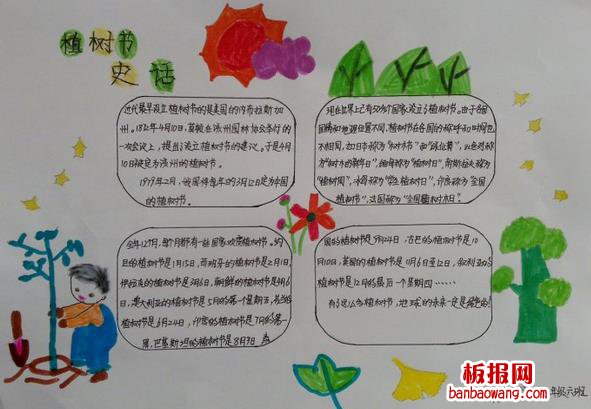 植树节
史话
近代最早设立植树节的是美国的内布拉斯加
州。1872年4月10日,莫顿在该州园林协会举行的
一次会议上,提出了设立植树节的建议。于是4月
10日被定为该州的植树节。
1979年2月,我国将每年的3月12日定为中国
的植树节。
现在世界上已有50多个国家设立了植树节。由于各国
国情和地理位置不同,植树节在各国的称呼和时间也
不相同,如日本称为"树木节"和"绿化周";以色列称
为"树木的新年日";缅甸称为"植树日";南斯拉夫称为
"植树周";冰岛称为"学生植树日";印度称为"全国
植树节";法国称为"全国树木日"。
全年12个月,每个月都有一些国家欢度植树节。约
旦的植树节是1月15日,西班牙的植树节是2月1日,
伊拉克的植树节是3月6日,朝鲜的植树节是4月6
日,澳大利亚的植树节是5月的第一个星期五,芬兰的
植树节是6月24日,印度的植树节是7月的第一
周,巴基斯坦的植树节是8月9日,泰
国的植树节是9月24日,古巴的植树节是10
月10日,英国的植树节是11月6日至12日,叙利亚的
植树节是12月的最后一个星期四……
有了这么多植树节,地球的未来一定是绿色的!
年级六班
板报网
www.banbaowang.com